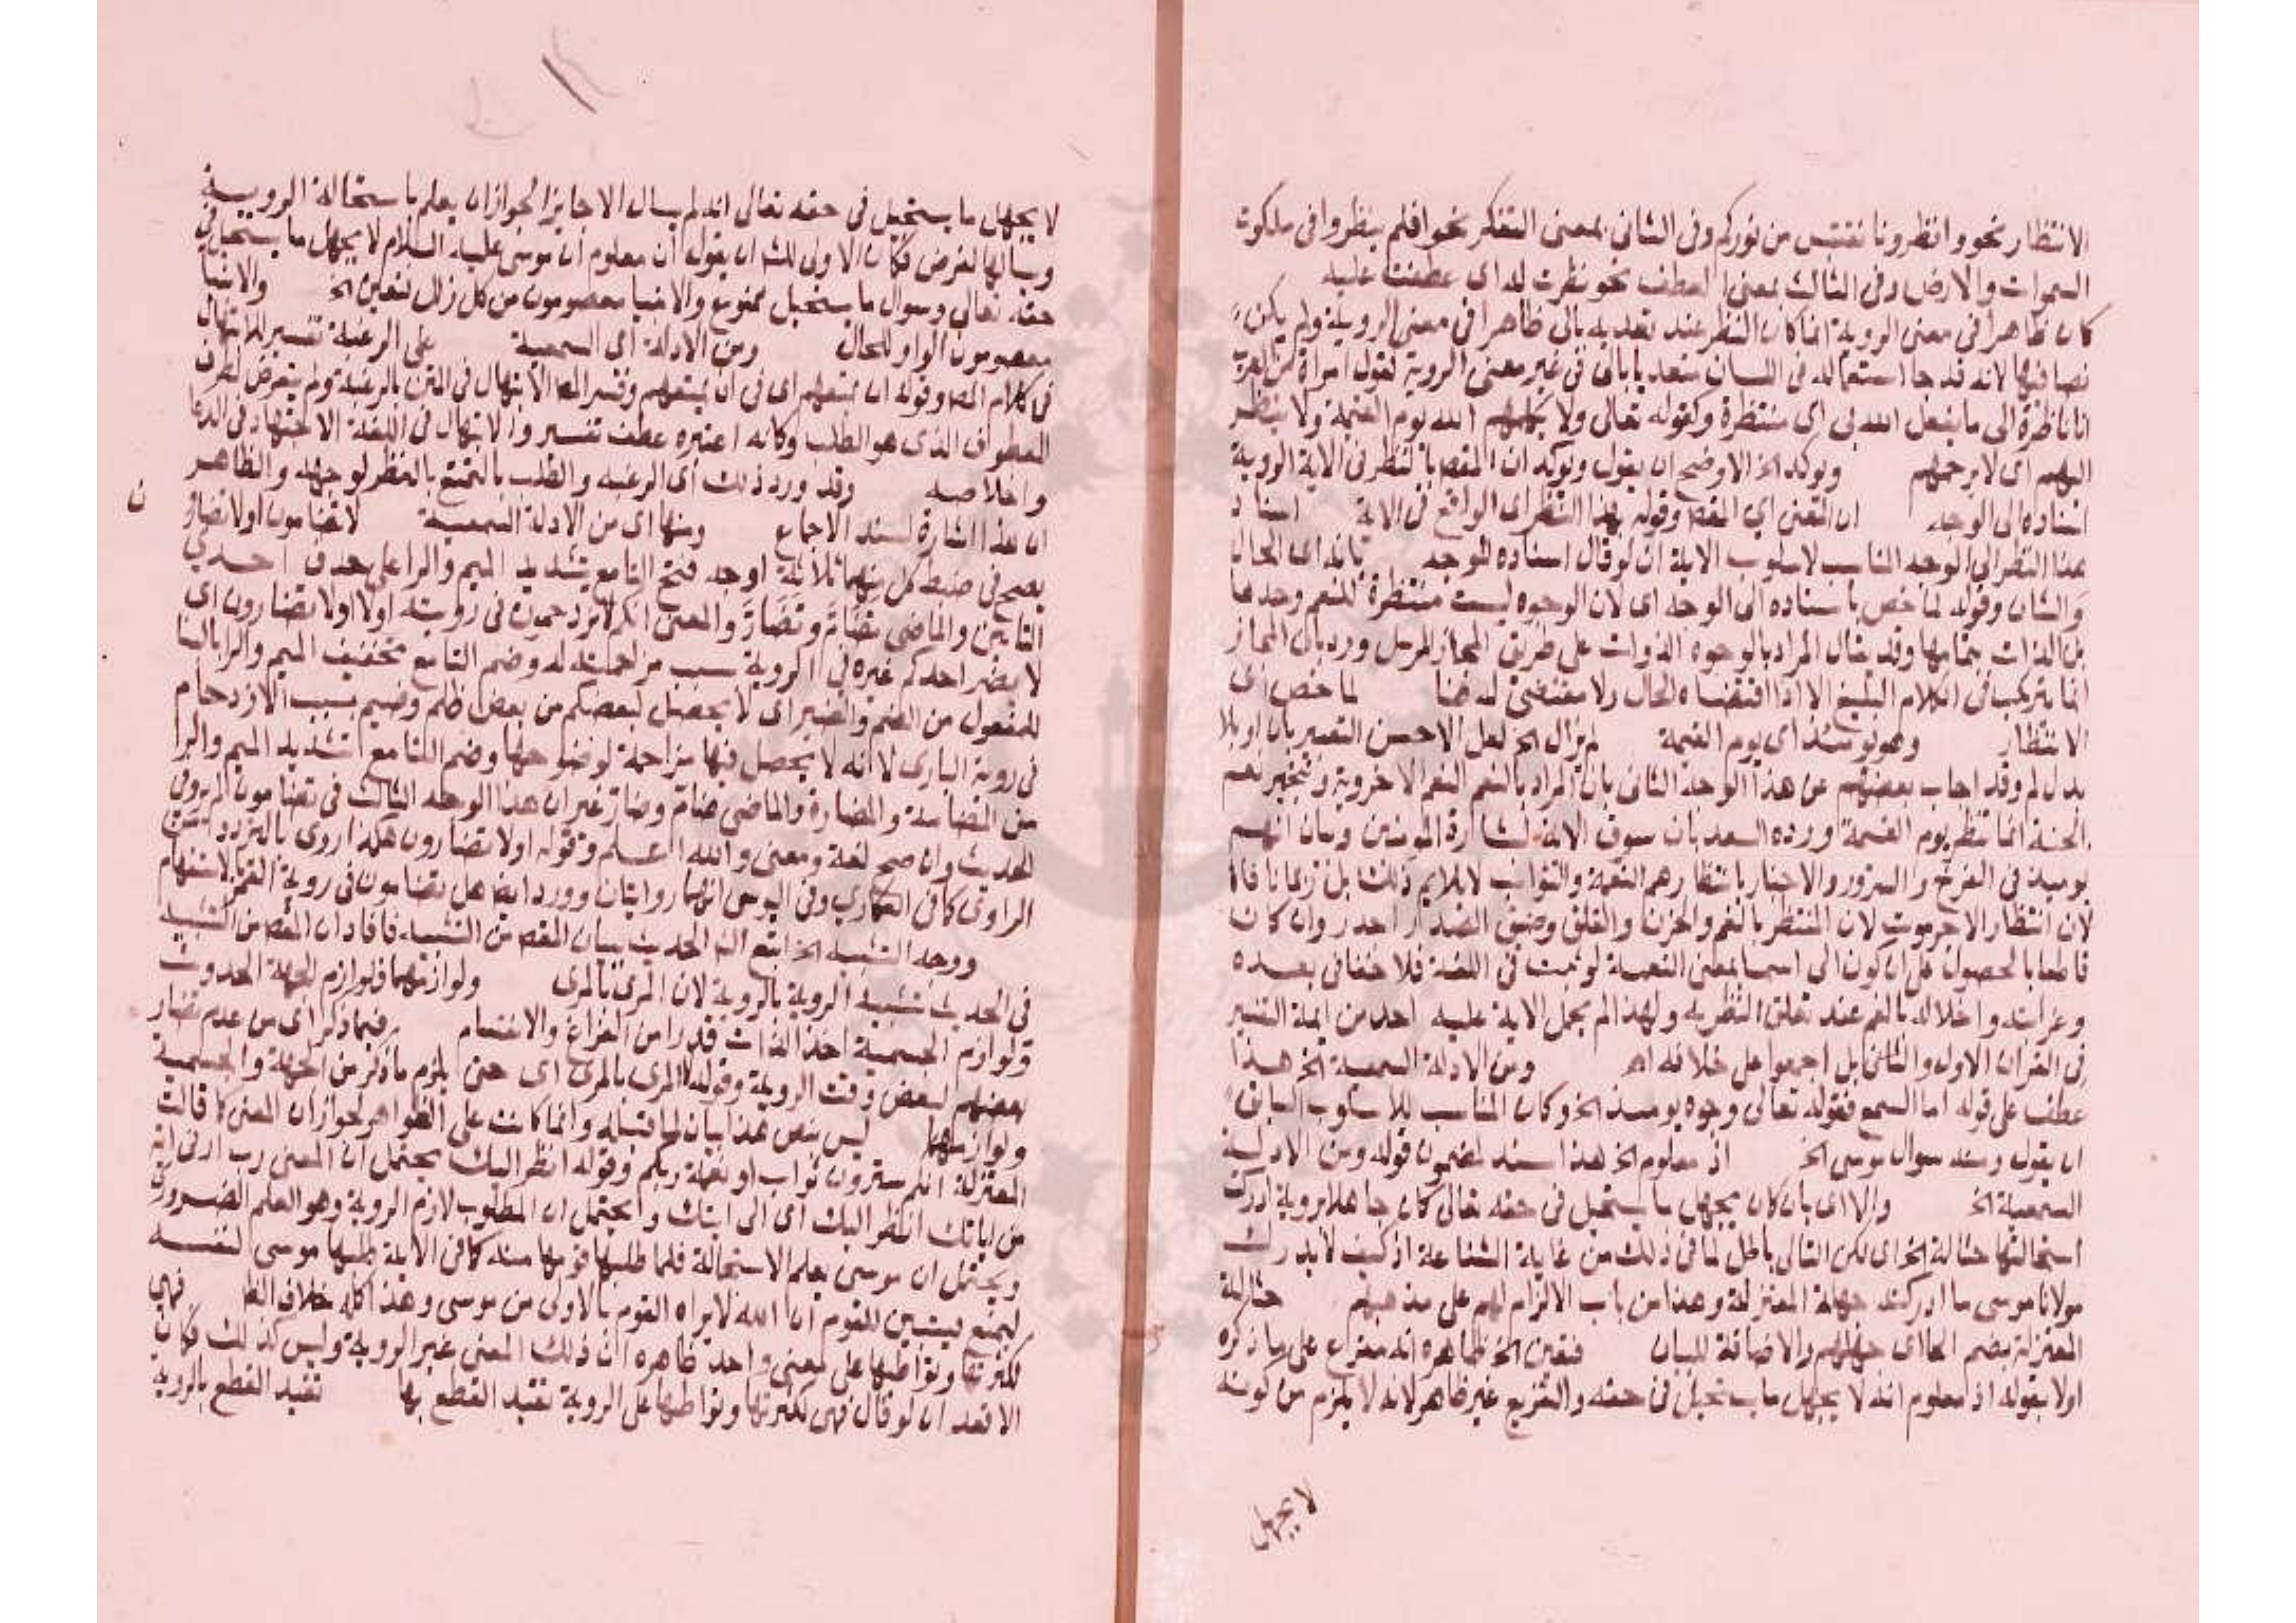 الانتظار نحو وانظرونا نقتبس من نوركم وفى الثانى بمعنى التفكر نحو افلم ينظروا فى ملكوت
السموات والارض وفى الثالث بمعنى العطف نحو نظرت له اى عطفت عليه
كان ظاهرا فى معنى الروية انما كان النظر عند تعديه بالى ظاهرا فى معنى الروية ولم يكن
نصا فيها لانه قد جا استعماله فى اللسان متعديا بالى فى غير معنى الروية لقول امراة من العرب
انا ناظرة الى ما يفعل الله بى اى منتظرة وكقوله تعالى ولا يكلمهم الله يوم القيمة ولا ينظر
اليهم اى لا يرحمهم ويوكد الخ الاوضح ان يقول ويوكد ان المقص بالنظر فى الاية الروية
اسناده الى الوجه ان المعنى اي المقص وقوله بهذا النظر اى الواقع فى الاية اسناد
هذا النظر الى الوجه المناسب لاسلوب الاية ان لو قال اسناده للوجه بانه اى الحال
والشان وقوله لما خص باسناده الى الوجه اى لان الوجوه ليست منتظرة للنعم وحدها
بل الذات بتمامها وقد يقال المراد بالوجوه الذوات على طريق المجاز المرسل ورد بان المجاز
انما يرتكب فى الكلام البليغ الا اذا اقتضاه الحال ولا مقتضى له هنا لما خص اى
الانتظار وهو يومئذ اى يوم القيمة لم يزال الخ لعل الاحسن التعبير بان او بلا
بدل لم وقد اجاب بعضهم عن هذا الوجه الثانى بان المراد بالنعم النعم الاخروية ونعم
الجنة انما تنتظر يوم القيمة ورده السعد بان سوق الاية لبشارة المومنين وبيان انهم
يوميذ فى الفرح والسرور والاخبار بانتظارهم النعمة والثواب لا يلايم ذلك بل ربما نافاه
لان انتظار الاجر موت لان المنتظر بالغم والحزن والقلق وضيق الصدر اجدر وان كان
قاطعا بالحصول على ان كون الى اسما بمعنى النعمة لو ثبت فى اللغة فلا خفا فى بعده
وغرابته واخلاله بالفهم عند تعلق النظر به ولهذا لم يحمل الاية عليه احد من ايمة التفسير
فى القران الاول والثانى بل اجمعوا على خلافه اه ومن الادلة السمعية الخ هذا
عطف على قوله اما السمع فقوله تعالى وجوه يوميذ الخ وكان المناسب للاسلوب السابق
ان يقول ومنه سوال موسى الخ اذ معلوم الخ هذا سند لمضمون قوله ومن الادلة
السمعية الخ والا اى بان كان يجهل ما يستحيل فى حقه تعالى كان جاهلا بروية ادركت
استحالتها حثالة الخ اى لكن التالى باطل لما فى ذلك من غاية الشناعة اذ كيف لا يدرك
مولانا موسى ما ادركته جهلة المعتزلة وهذا من باب الالزام لهم على مذهبهم حثالة
المعتزلة بضم الحا اى جهلهم والاضافة للبيان فتعين الخ ظاهره انه مفرع على ما ذكره
اولا بقوله اذ معلوم انه لا يجهل ما يستحيل فى حقه والتفريع غير ظاهر لانه لا يلزم من كونه
لا يجهل
لا يجهل ما يستحيل فى حقه تعالى انه لم يسال الا جايزا لجواز ان يعلم باستحالة الروية
ويسالها لغرض فكان الاولى للش ان يقول ان معلوم ان موسى عليه السلام لا يجهل ما يستحيل فى
حقه تعالى وسوال ما يستحيل ممنوع والانبيا معصومون من كل زلل فتعين الخ والانبيا
معصومون الواو للحال ومن الادلة اى السمعية على الرغبة تفسير للابتهال
فى كلام المص وقوله ان يمتعهم اى فى ان يمتعهم وفسر الش الابتهال فى المتن بالرغبة ولم يتعرض لطرف
المعطوف الذى هو الطلب وكانه اعتبره عطف تفسير والابتهال فى اللغة الاجتهاد فى الدعا
واخلاصه وقد ورد ذلك اى الرغبة والطلب بالتمتع بالنظر لوجهه والظاهر
ان هذا اشارة لسند الاجماع ومنها اى من الادلة السمعية لا تضامون او لا تضارون
يصح فى ضبط كل منهما ثلاثة اوجه فتح التا مع تشديد الميم والرا على حذف احدى
التايين والماضى تضام وتضار والمعنى انكم لا تزدحمون فى رويته اولا او لا تضارون اى
لا يضر احدكم غيره فى الروية بسبب مزاحمته له وضم التا مع تخفيف الميم والرا بالبنا
للمفعول من الضيم والضير اى لا يحصل لبعضكم من بعض ظلم وضيم بسبب الازدحام
فى روية البارى لا انه لا يحصل فيها مزاحمة لوضوحها وضم التا مع تشديد الميم والرا
من المضامة والمضارة والماضى ضام وضار غير ان هذا الوجه الثالث فى تضامون لم يروى
الحديث وان صح لغة ومعنى والله اعلم وقوله او لا تضارون هكذا روى بالتردد من
الراوى كما فى وفى اليوسى انهما روايتان وورد ايضا هل تضامون فى روية القمر بالاستفهام
ووجه التشبيه الخ اتبع الش الحديث ببيان المقص من التشبيه فافاد ان المقص من التشبيه
فى الحديث تشبيه الروية بالروية لان المرى بالمرى ولوازمهما فلوازم الجهة الحدوث
ولوازم الجسمية اخذ الذات قدرا من الفراغ والانقسام فيما ذكر اى من عدم تضار
بعضهم لبعض وقت الروية وقوله لا المرى بالمرى اى حتى يلزم ما ذكر من الجهة والجسمية
ولوازمهما ليس بنص هذا بيان لما قبله وانما كانت على الظواهر لجواز ان المعنى كما قالت
المعتزلة انكم سترون ثواب او نعمة ربكم وقوله انظر اليك يحتمل ان المعنى رب ارنى اية
من اياتك انظر اليك اى الى ايتك ويحتمل ان المطلوب لازم الروية وهو العلم الضرورى
ويحتمل ان موسى يعلم الاستحالة فلما طلبها قومها منه كما فى الاية طلبها موسى لنفسه
ليمنع فيتبين للقوم ان الله لا يراه القوم بالاولى من موسى وهذا كله خلاف الظ فهى
لكثرتها وتواطيها على معنى واحد ظاهره ان ذلك المعنى غير الروية وليس كذلك فكان
الاقعد ان لو قال فهى لكثرتها وتواطيها على الروية تفيد القطع بها تفيد القطع بالروية